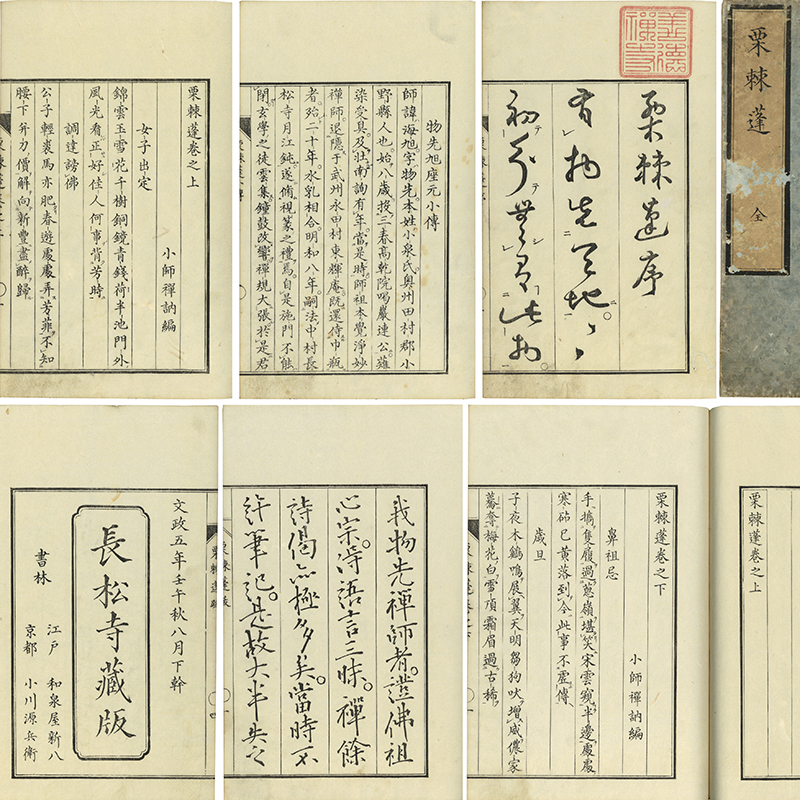 栗棘蓬 全
栗棘蓬序
有物先天地
初分
此物
物先旭座元小傳
師諱海旭字物先本姓小泉氏奥州田村郡小
野縣人也始八歳投三春高乾院喝巖連公薙
染受具及壯南詢有年當是時師祖本覺淨妙
禪師退隱于武州永田村東輝庵既還侍巾瓶
者殆二十年水乳相合明和八年嗣法中村長
松寺月江鈍遂脩視篆之禮焉自是施門不能
閉玄學之徒雲集鐘鼓改響禪規大張於是君
栗棘蓬卷之上
小師禪訥編
女子出定
錦雲玉雪花千樹銅鏡青錢荷半池門外
風光看正好佳人何事背芳時
調達謗佛
公子輕裘馬亦肥春遊處處弄芳菲不知
腰下 價解向新豐盡醉歸
栗棘蓬卷之上
栗棘蓬卷之下
小師禪訥編
鼻祖忌
手攜隻履過葱嶺堪笑宋雲窺半邊處處
寒砧已黄落到今此事不虚傳
歳旦
子夜木鶴鳴展翼天明芻狗吠增威儂家
驀 梅花白雪頂霜眉過古稀
我物先禪師者證佛祖
心宗得語言三昧禪餘
詩偈亦極多矣當時不
許筆記是故大半失之
文政五年壬午秋八月下幹
長松寺藏版
書林
江戸 和泉屋新八
京都 小川源兵衛